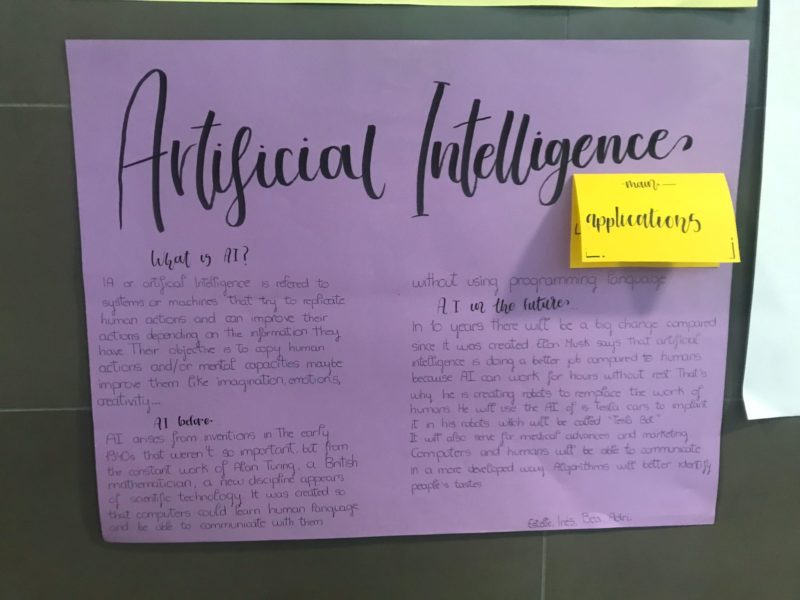 Artificial Intelligence
main
applications
What is AI?
IA or artifical Intelligence is refered to
systems or machines that try to replicate
human actions and can improve their
actions depending on the information they
have. Their objective is to copy human
actions and/or mental capacities maybe
improve them like imagination, emotions,
creativity...
AI before
AI arises from inventions in the early
1940s that weren't so important, but from
the constant work of Alan Turing, a British
mathematician, a new discipline appears
of scientific technology. It was created so
that computers could learn human language
and be able to communicate with them
without using programming language
AI in the future...
In 10 years there will be a big change compared
since it was created Elon Musk says that artificial
intelligence is doing a better job compared to humans
because AI can work for hours without rest. That's
why he is creating robots to remplace the work of
humans. He will use the AI of is Tesla cars to implant
it in his robots which will be called "Tesla Bot"
It will also serve for medical advances and marketing
Computers and humans will be able to communicate
in a more developed way. Algorithms will better identify
people's tastes
Estelle, Inés, Bea, Adri.